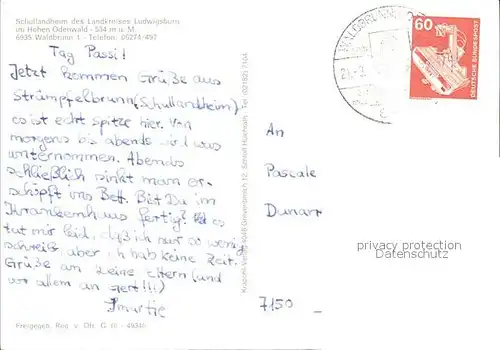 Schullandheim des Landkreises Ludwigsburg
im Hohen Odenwald - 534 m ü. M.
6935 Waldbrunn 1 - Telefon: 06274/497
Tag Passi!
Jetzt kommen Grüße aus
Strümpfelbrunn (Schullandheim)
es ist echt spitze hier. Von
morgens bis abends wird was
unternommen. Abends
schließlich sinkt man er-
schöpft ins Bett. Bist Du im
Krankenhaus fertig? es
tut mir leid, daß ich nur so wenig
schreib, aber ich hab keine Zeit.
Grüße an Deine Eltern (und
vor allem an Gert!!!)
Freigegeben. Reg. v. Ofr. G
Krapohl Verlag 4048 Grevenbroich 12, Schloß Hülchrath, Tel. (02182) 7104
WALDBRUNN
60
DEUTSCHE BUNDESPOST
An
Pascale
Dunarr
7150
privacy protection
Datenschutz